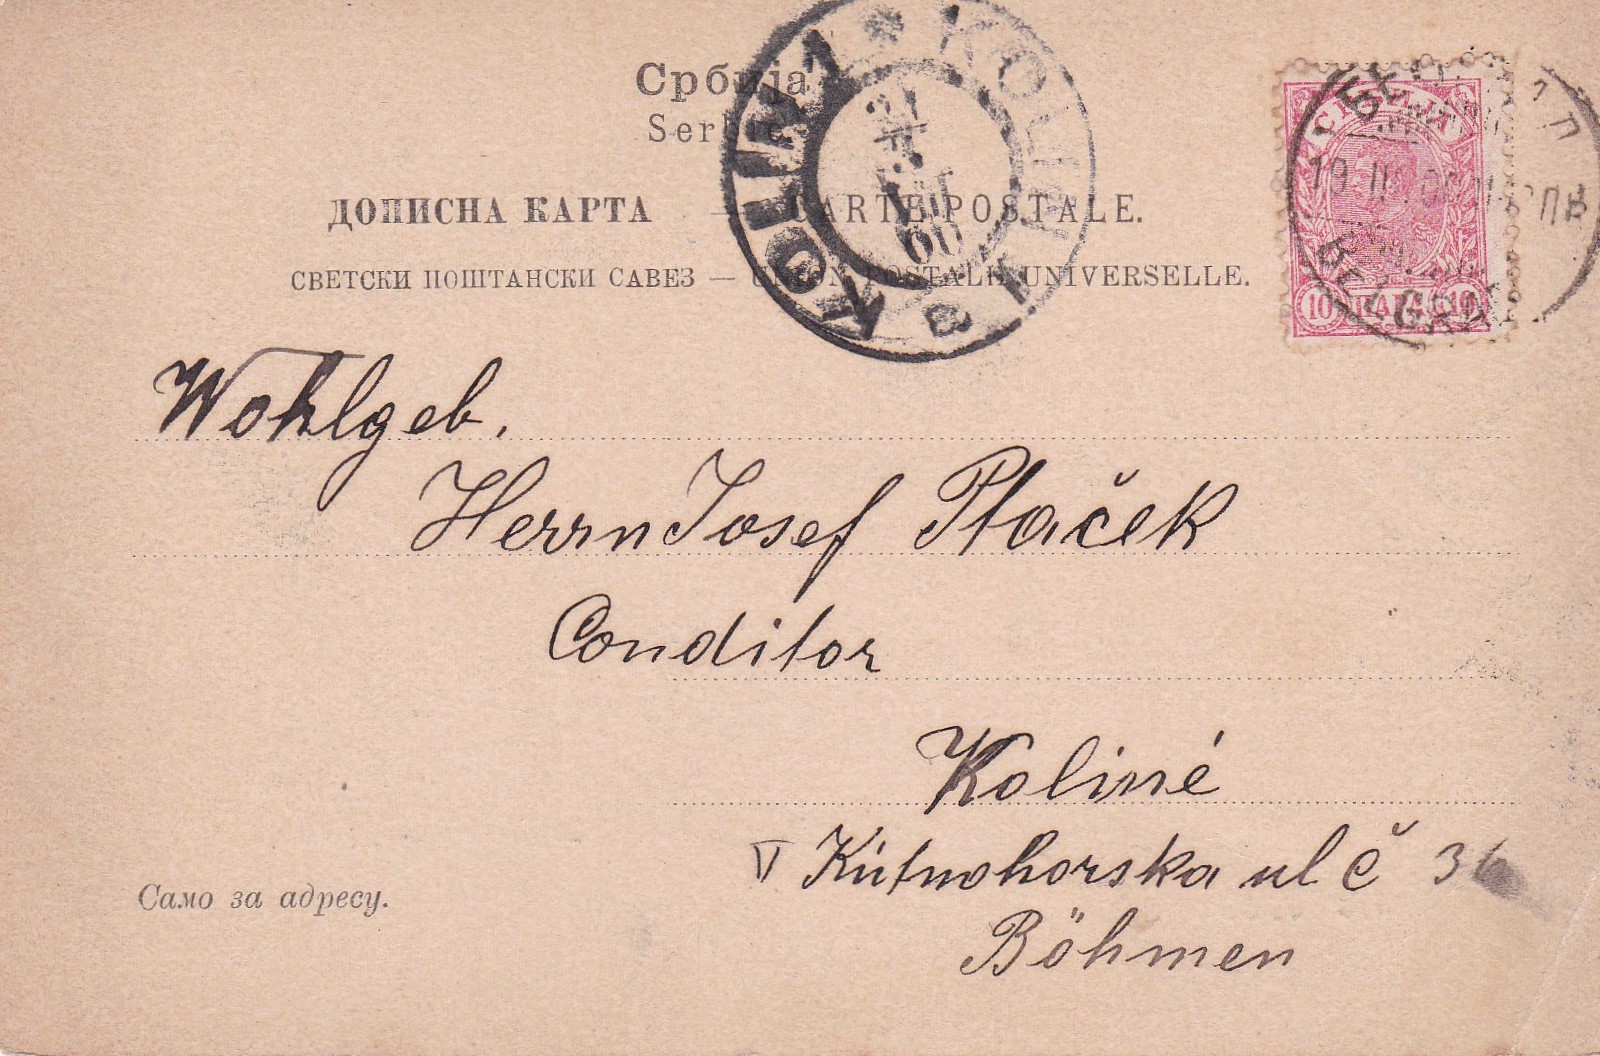 Србија
Serbie
ДОПИСНА КАРТА — CARTE POSTALE.
СВЕТСКИ ПОШТАНСКИ САВЕЗ — UNION POSTALE UNIVERSELLE.
KOLIN 1 * KOLÍN 1
00
СРБИЈА
10 ПАРА 10
BELGRADE
19 III
Wohlgeb.
Herrn Josef Ptaček
Conditor
Kolíně
Kútnohorska ul č 36
Böhmen
Само за адресу.